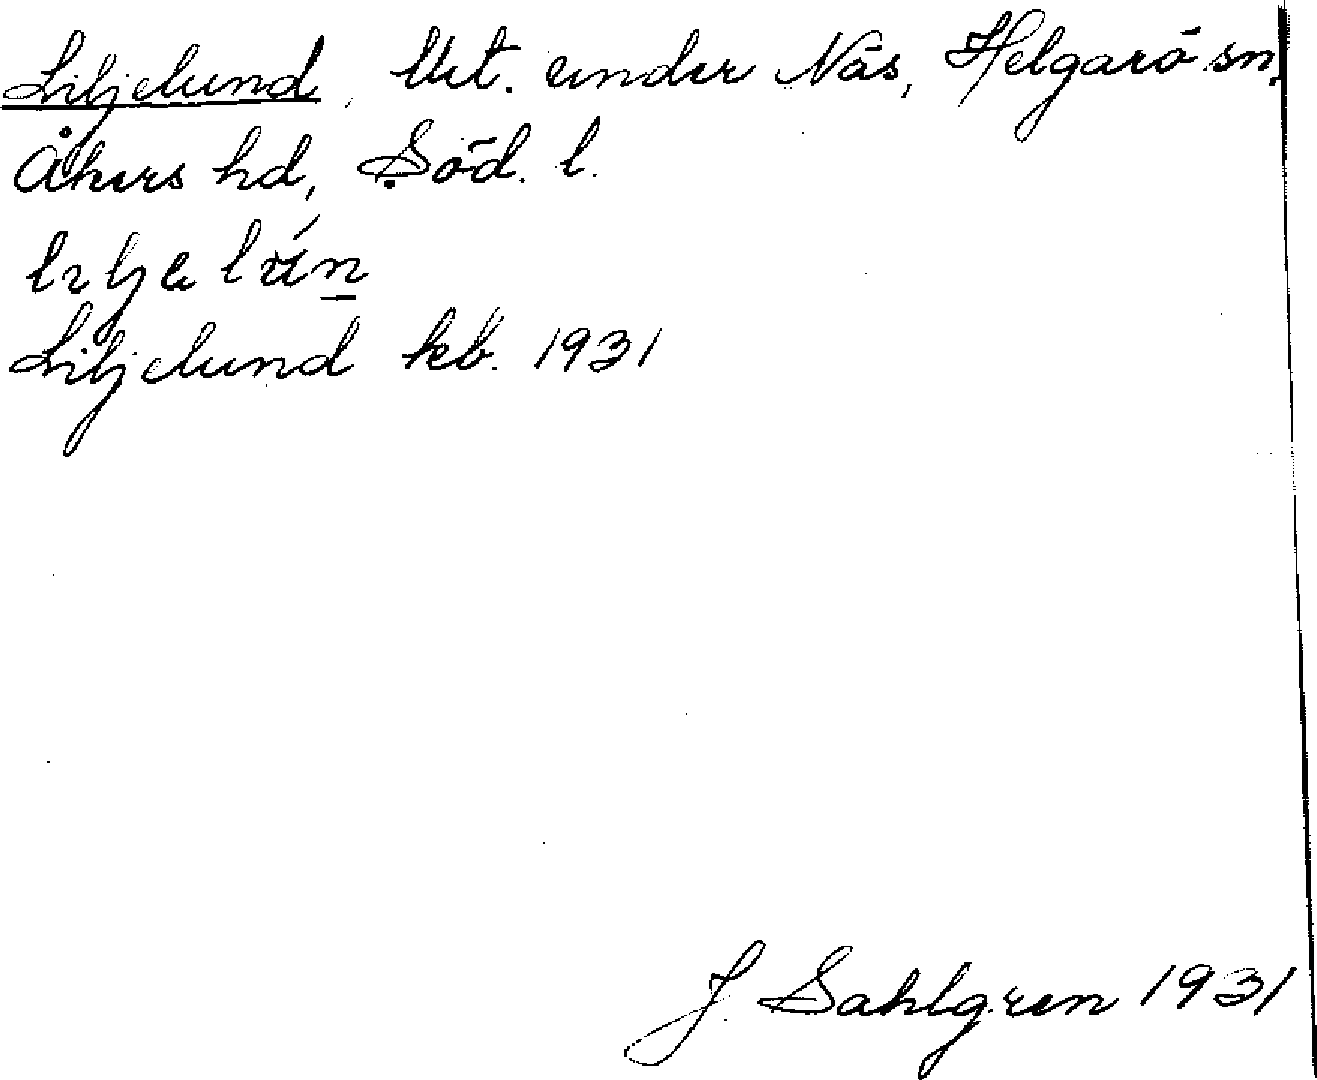 Liljelund, lht. under Näs, Helgarö sn,
Åkers hd, Söd. l.
Liljelund kb. 1931
J. Sahlgren 1931